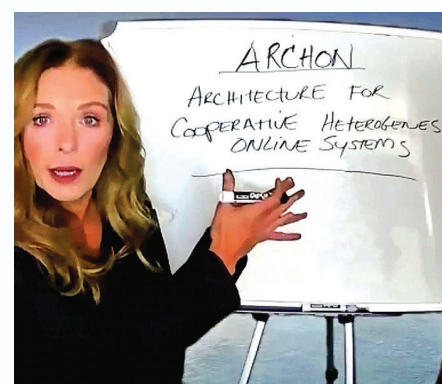 ARCHON
ARCHITECTURE FOR
COOPERATIVE HETEROGENIES
ONLINE SYSTEMS